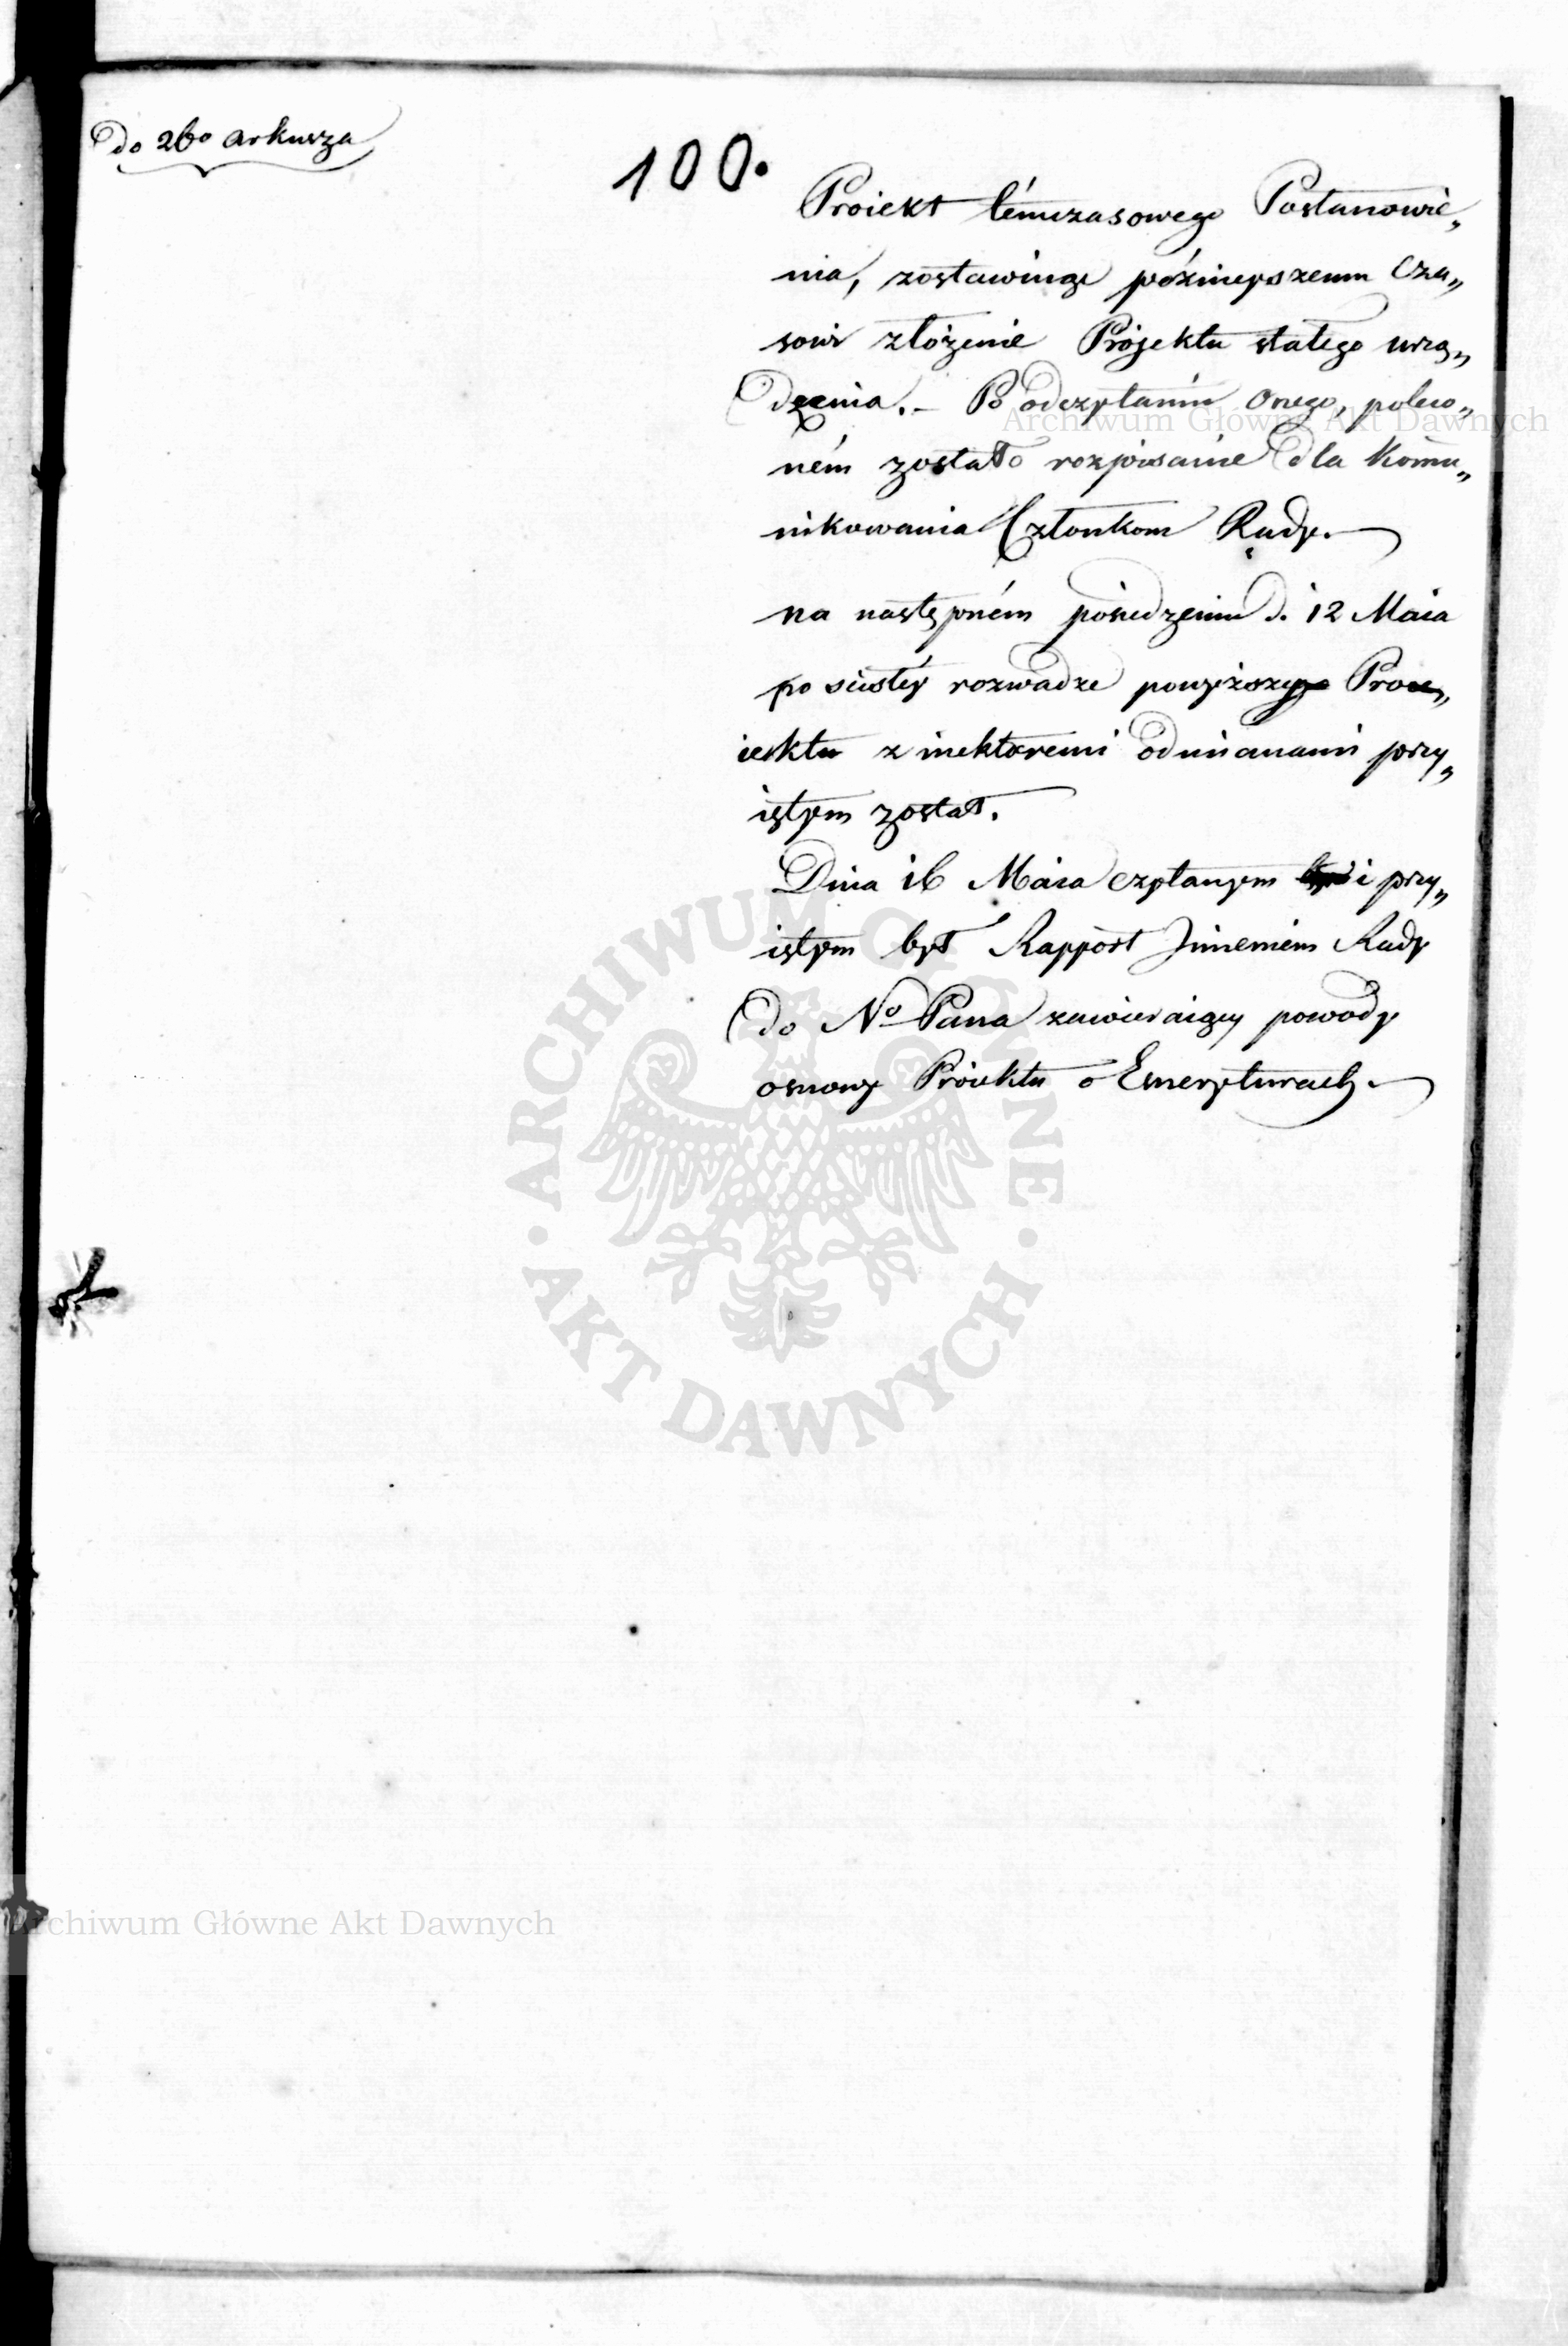 do 26º arkusza
100.
Proiekt témczasowego Postanowie„
nia, zostawuiąc późnieyszemu cza„
sowi złożenie Projektu stałego urzą„
dzenia. – Po odczytaniu onego, poleco„
ném zostało rozpisanie dla komu„
nikowania Członkom Rady. —
na następném posiedzeniu d. 12 Maia
po scisłéy rozwadze powyższy Pro„
iektu z niektoremi odmianami przy„
iętym został.
Dnia 16 Maia czytanym i przy„
iętym był Rapport Jmieniem Rady
do Nº Pana zawieraiący powody
osnowy Proiektu o Emeryturach. —
Archiwum Główne Akt Dawnych
ARCHIWUM GŁÓWNE
· AKT DAWNYCH ·
Archiwum Główne Akt Dawnych